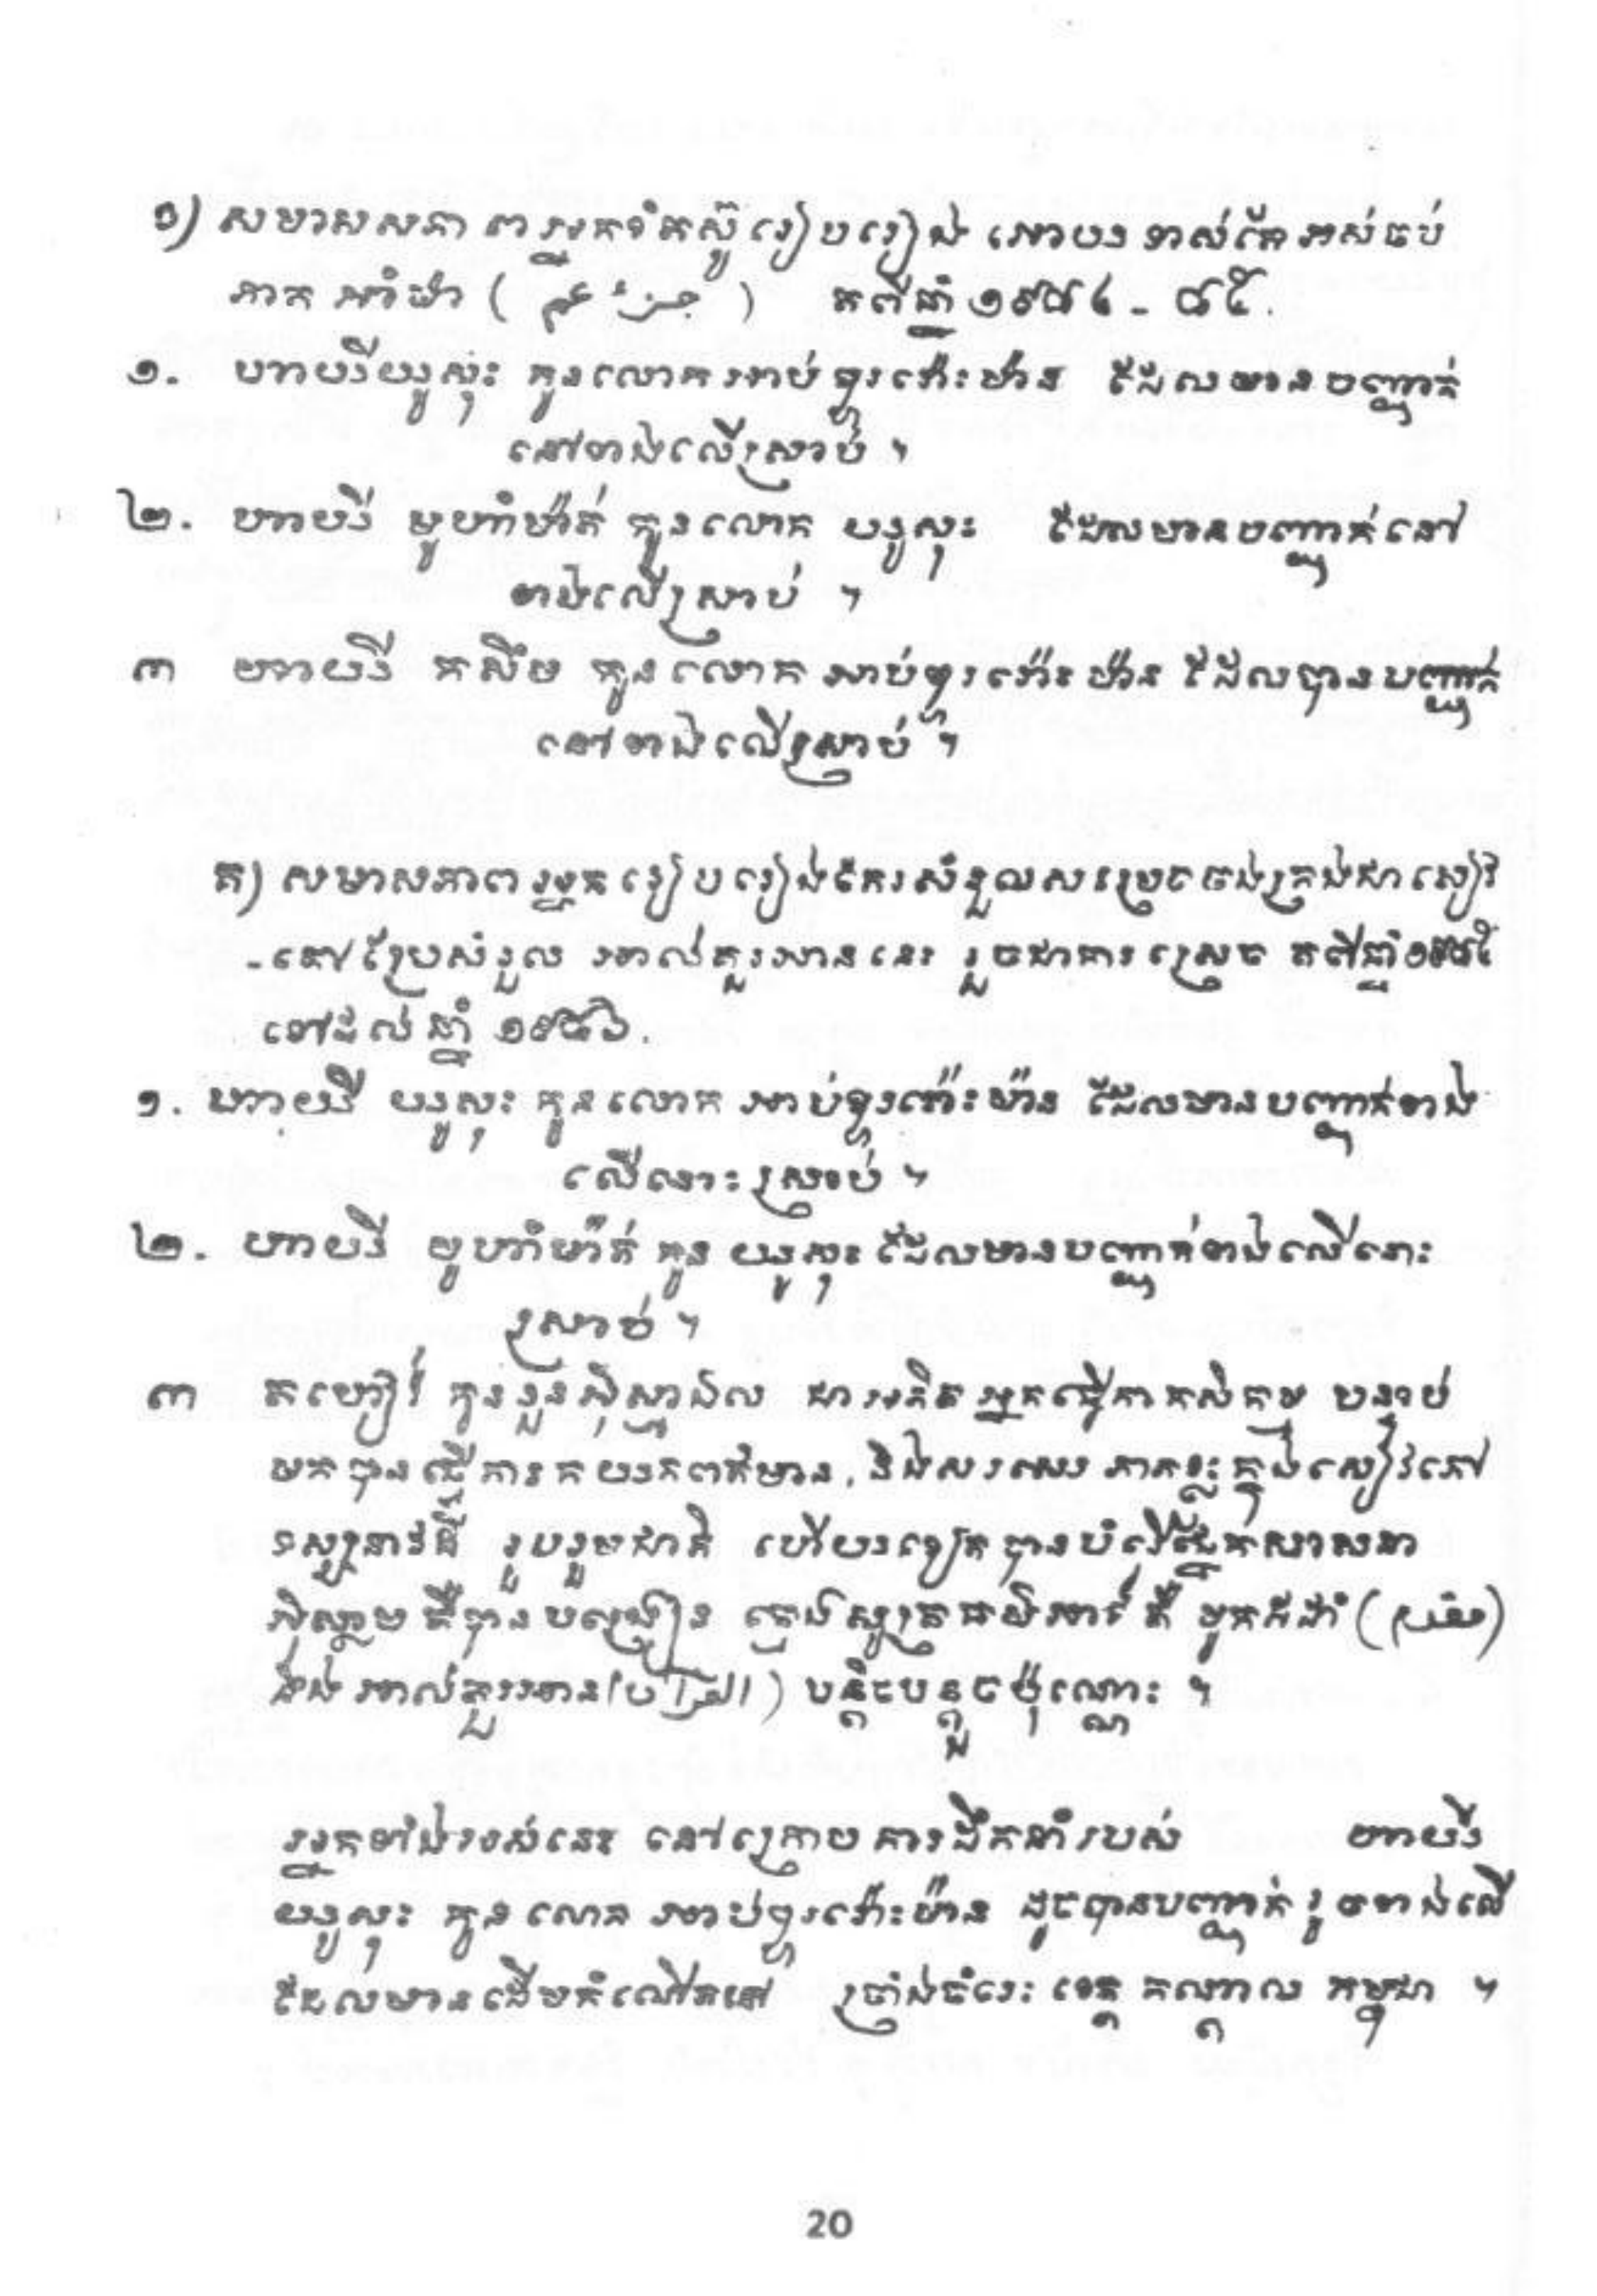 ១) សមាសសភា ព អ្នកទំ តស៊ូ រៀបរៀង អោយ ទាល់តែ អស់ចប់
ភាគ អាំម៉ា ( جزء عم ) តពីឆ្នាំ ១៩៨៤ - ៨៥.
១. ហាយី យូសុះ កូនលោក អាប់ឌួរ រ៉ោះម៉ាន ដែលមានបញ្ជាក់
នៅខាងលើស្រាប់ ។
២. ហាយី មូហាំម៉ាត់ កូនលោក យូសុះ ដែលមានបញ្ជាក់នៅ
ខាងលើស្រាប់ ។
៣ ហាយី កសឹម កូនលោក អាប់ឌួរ រ៉ោះម៉ាន ដែលបានបញ្ជាក់
នៅខាងលើស្រាប់ ។
គ) សមាសភាព អ្នក រៀបរៀងកែសំរួលសម្រេចចងក្រងជាសៀវ
-ភៅប្រែសំរួល អាល់គួរអាននេះ រួចជាការស្រេច តពីឆ្នាំ១៩៨៥
ទៅដល់ឆ្នាំ ១៩៨៦.
១. ហាយី យូសុះ កូនលោក អាប់ឌួរ រ៉ោះម៉ាន ដែលមានបញ្ជាក់ខាង
លើណោះ ស្រាប់ ។
២. ហាយី មូហាំម៉ាត់ កូន យូសុះ ដែលមានបញ្ជាក់ខាងលើនោះ
ស្រាប់ ។
៣ តយៀវ កូន ងួន អ៊ីស្មាអែល ជាអតិត អ្នកធ្វើការកសិកម្ម បន្ទាប់
មកបានធ្វើការកយកពត៌មាន, និងសរសេរ ភាគខ្លះក្នុងសៀវភៅ
ទស្សនាវដ្ដី រូបរួមជាតិ ហើយទៀតបានបំរើផ្នែកសាសនា
អ៊ីស្លាម គឺបានបង្រៀន ក្មេងសូត្រ មូកកំដាំ (مقدم)
និង អាល់គួរអាន (القرآن) បន្ដិចបន្ដួចប៉ុណ្ណោះ ។
អ្នកទាំងអស់នេះ នៅក្រោមការដឹកនាំរបស់ ហាយី
យូសុះ កូន លោក អាប់ឌួរ រ៉ោះម៉ាន ដូចបានបញ្ជាក់ រួចខាងលើ
ដែលមានដើមកំណើតនៅ ច្រាំងចំរេះ ខេត្ត កណ្ដាល កម្ពុជា ។
20